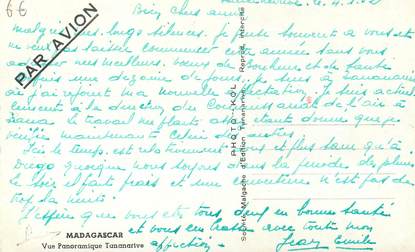 6€
PAR AVION
Bien chers amis
Malgré mes longs silences. Je pense souvent à vous et
ne veux laisser commencer cette année sans vous
adresser mes meilleurs vœux de bonheur et de santé
Depuis une dizaine de jours je suis à Tananarive
où j'ai rejoint ma nouvelle affectation. Je suis
à la direction du Commissariat de l'air à
Tana. le travail me plaît étant donné que je
vérifie maintenant celui des autres.
Ici le temps est relativement et plus sain qu'à
Diego. quoique nous soyons dans la période des pluies
le soir il fait frais et une couverture n'est pas de
trop la nuit.
J'espère que vous êtes tous deux en bonne santé
et vous embrasse avec toute mon
affection. Jean
PHOTO KOL
Société Malgache d'Edition Tananarive. Reprod. interdite
MADAGASCAR
Vue Panoramique Tananarive